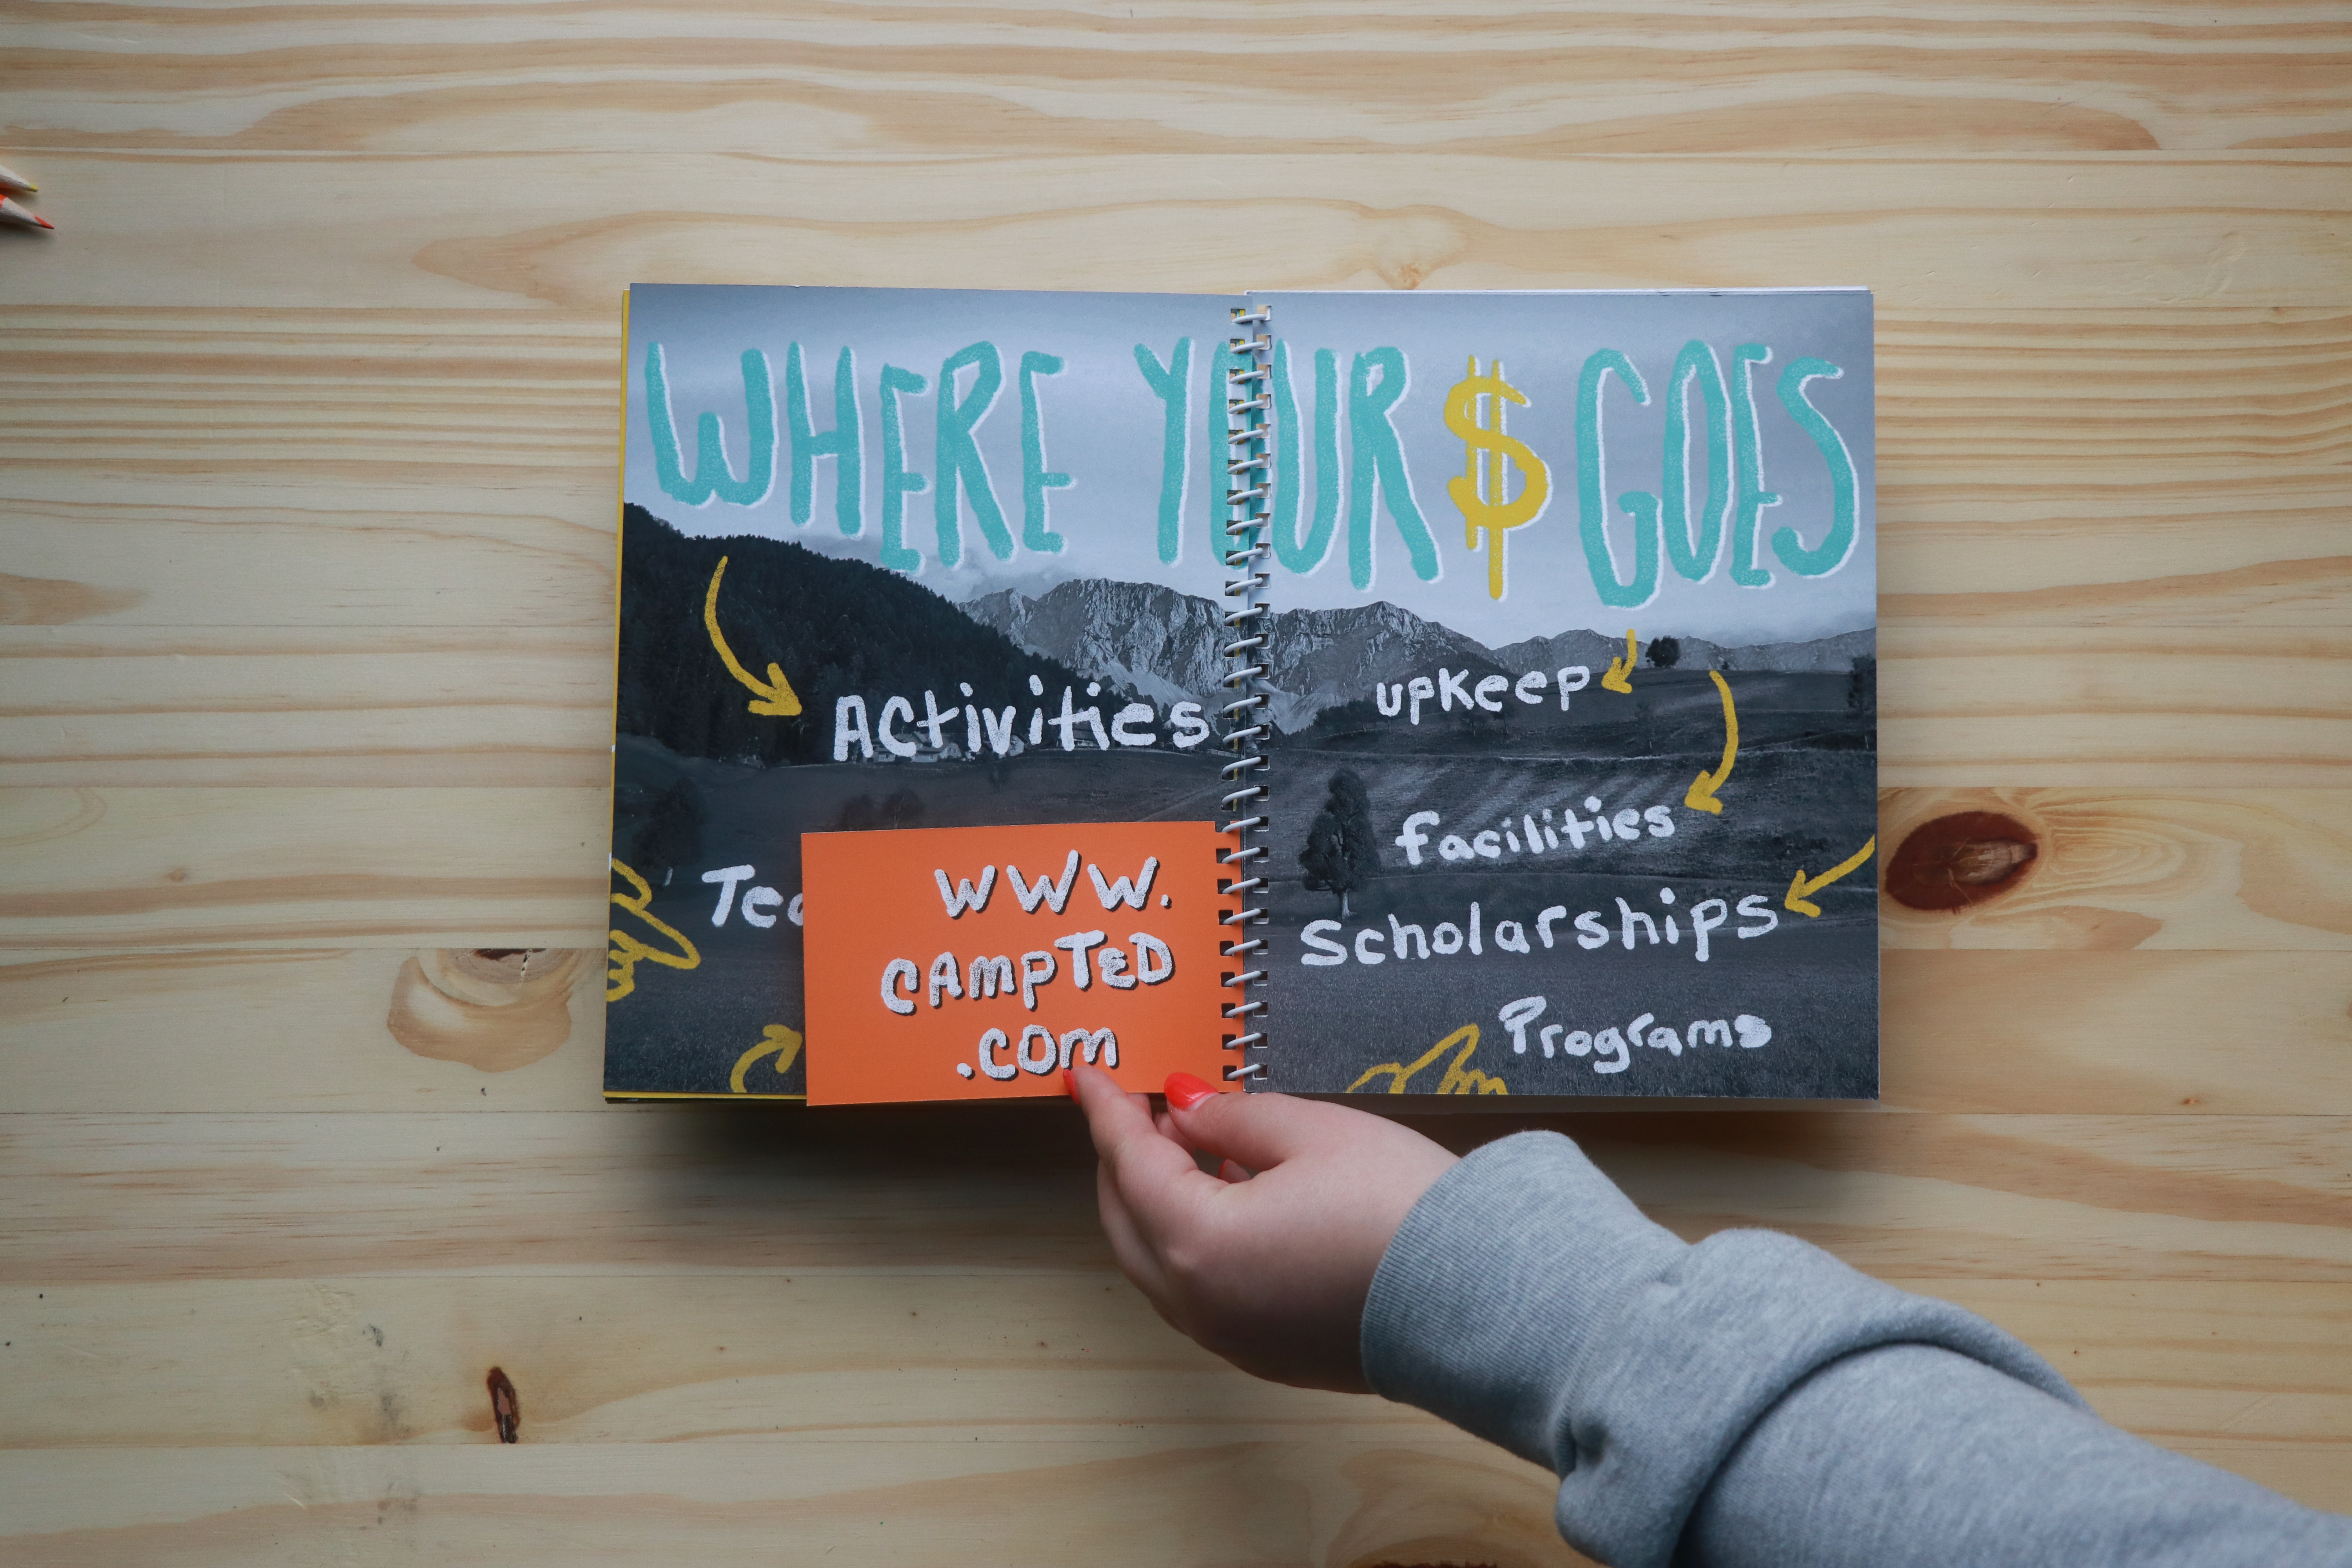 WHERE YOUR $ GOES
Activities
www.
CAMPTED
.com
upkeep
facilities
Scholarships
Programs